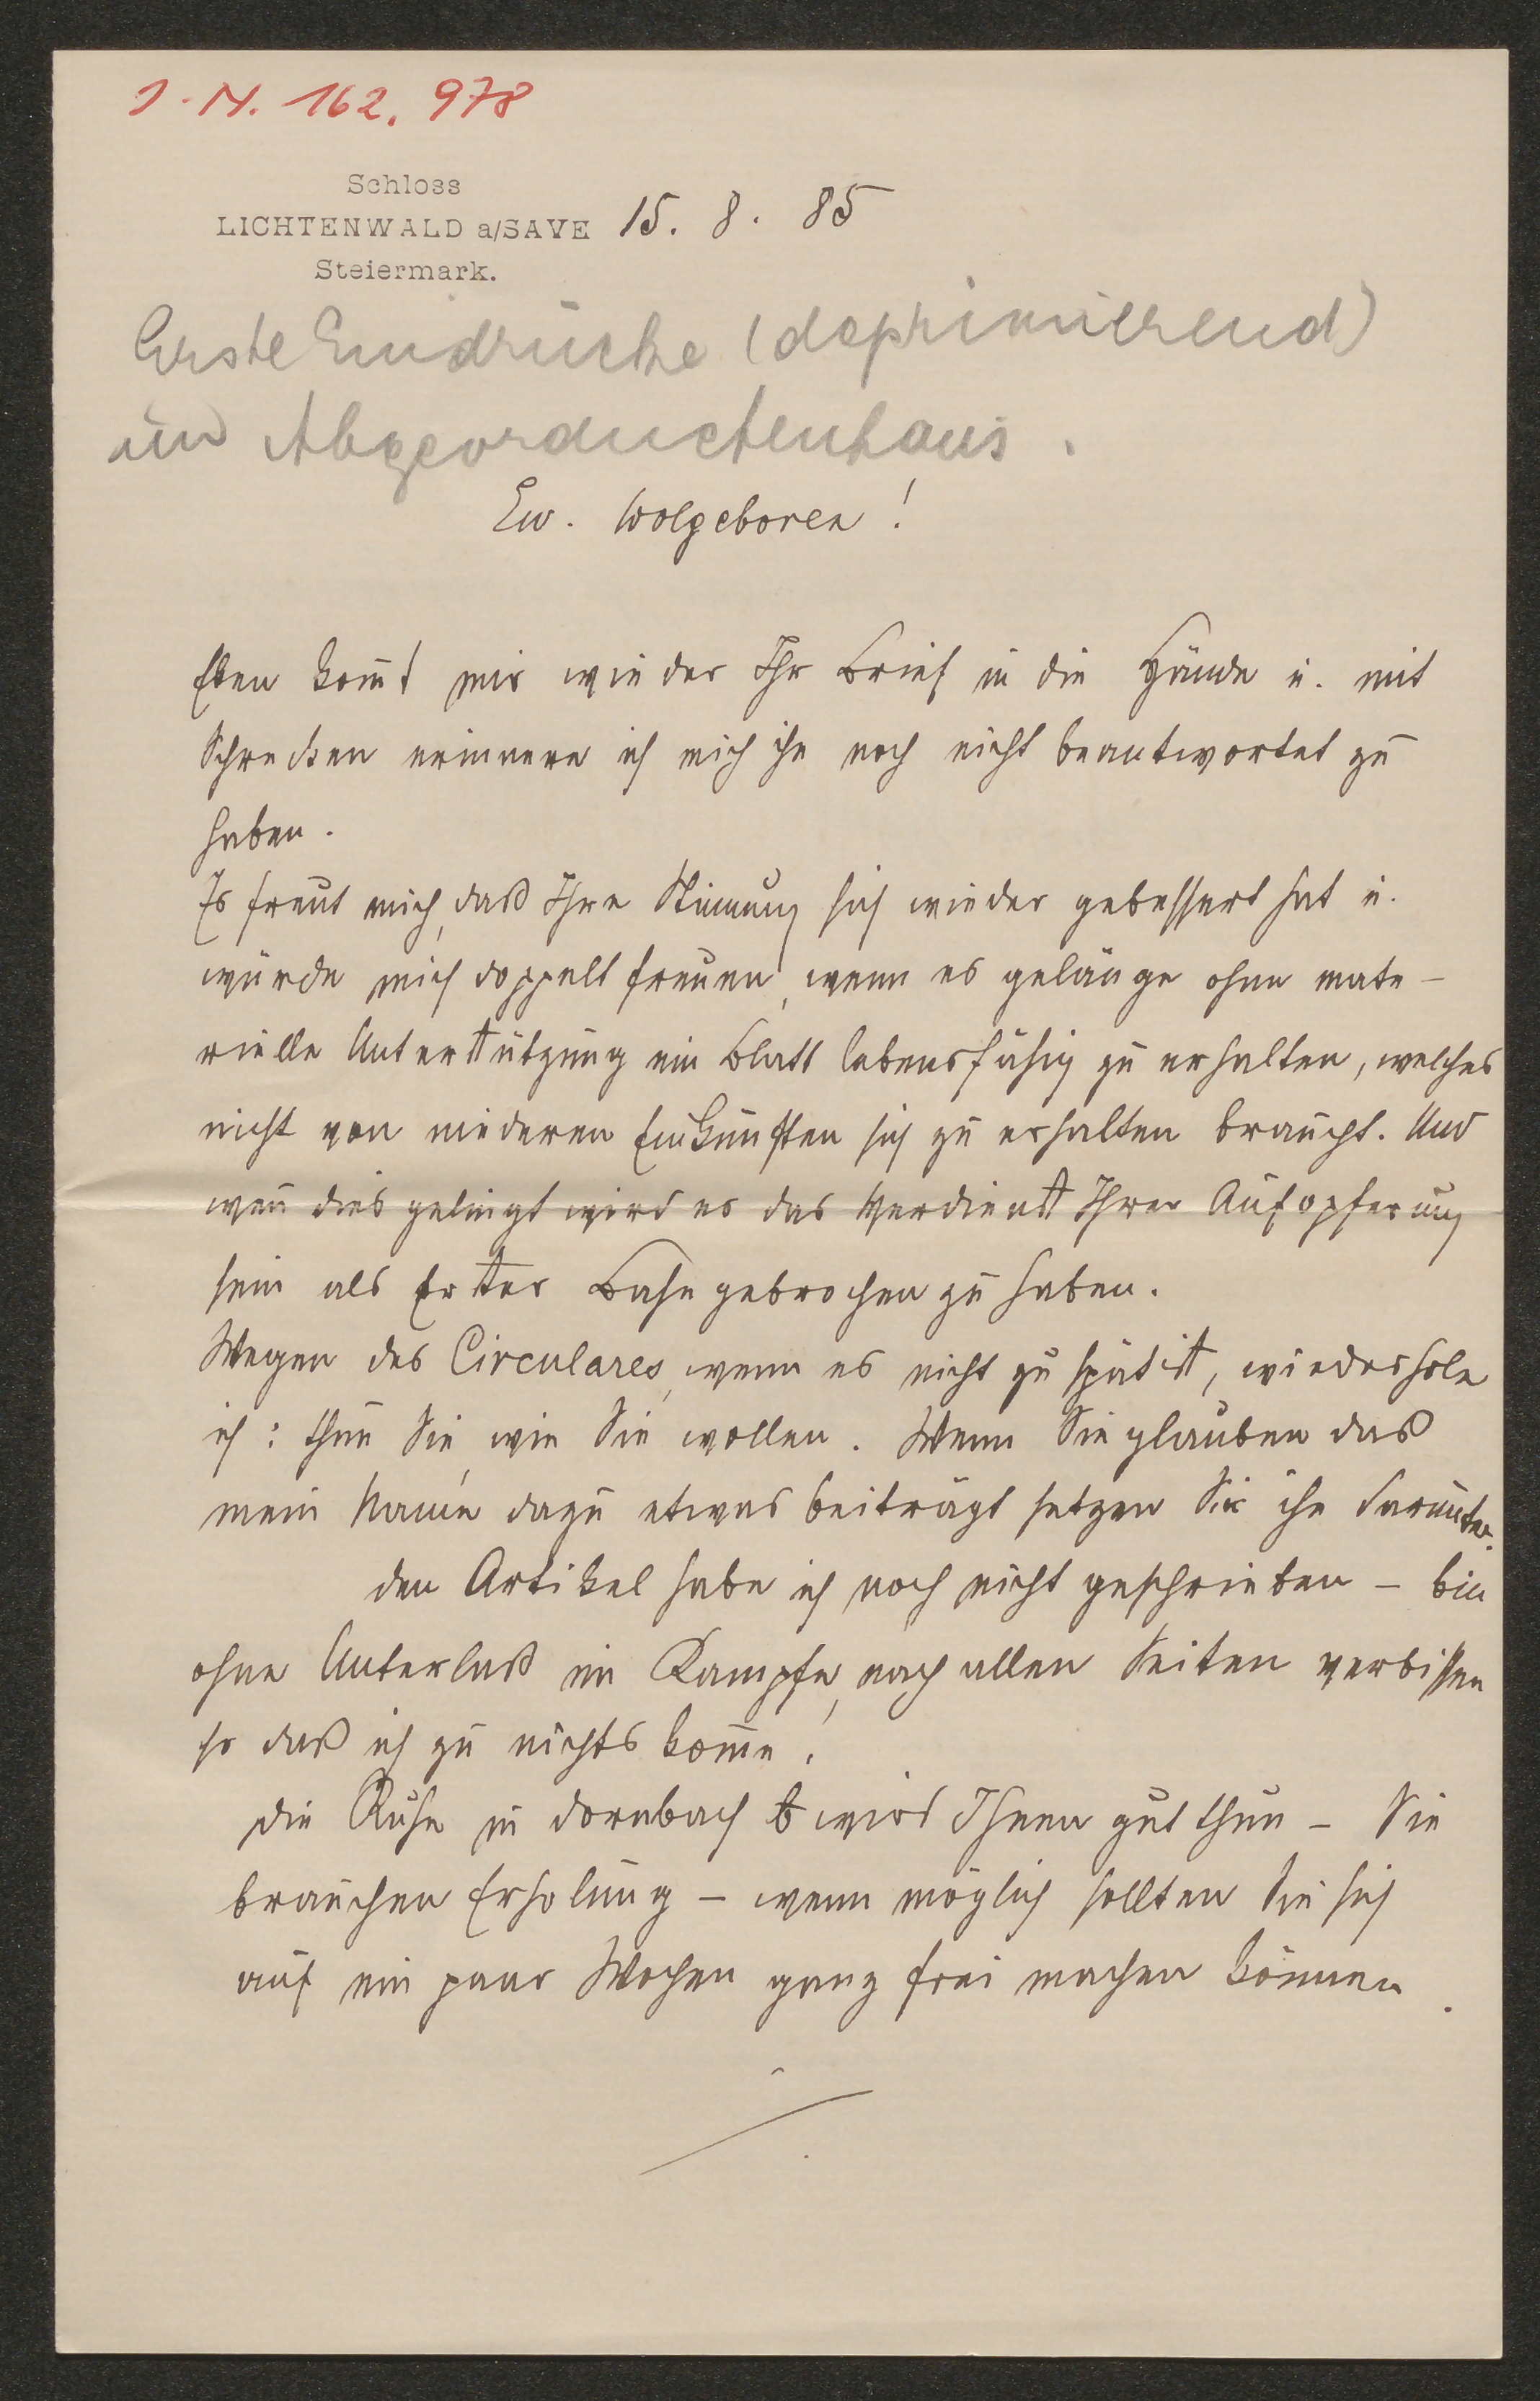 J. N. 162.978
Schloss
LICHTENWALD a/SAVE 15. 8. 85
Steiermark.
Erste Eindrücke (deprimierend)
im Abgeordnetenhaus.
Ew. Wolgeboren!
Eben kom̄t mir wieder Ihr Brief in die Hände u. mit
Schrecken erinnere ich mich ihn noch nicht beantwortet zu
haben.
Es freut mich, daß Ihre Stimmung sich wieder gebessert hat u.
würde mich doppelt freuen, wenn es gelänge ohne mate-
rielle Unterstützung ein Blatt lebensfähig zu erhalten, welches
nicht von niederen Einkünften sich zu erhalten braucht. Und
wen̄ dies gelingt wird es das Verdienst Ihrer Aufopferung
sein als Erster Bahn gebrochen zu haben.
Wegen des Circulares, wenn es nicht zu spät ist, wiederhole
ich: thun Sie wie Sie wollen. Wenn Sie glauben daß
mein Name dazu etwas beiträgt setzen Sie ihn darunter.
den Artikel habe ich noch nicht geschrieben – bin
ohne Unterlaß im Kampfe, nach allen Seiten verbissen
so daß ich zu nichts kom̄e!
Die Ruhe in Dornbach wird Ihnen gut thun – Sie
brauchen Erholung – wenn möglich sollten Sie sich
auf ein paar Wochen ganz frei machen können.